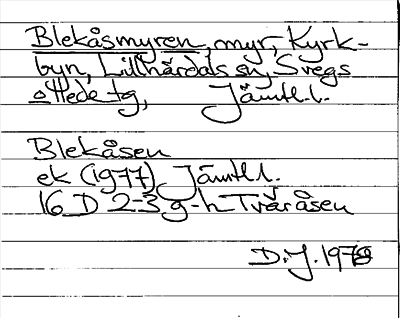 Blekåsmyren, myr, Kyrk-
byn, Lillhärdals sn, Svegs
o Hede tg, Jämtl. l.
Blekåsen
ek (1977) Jämtl l.
16 D 2-3 g-h Tväråsen
D.J. 1978